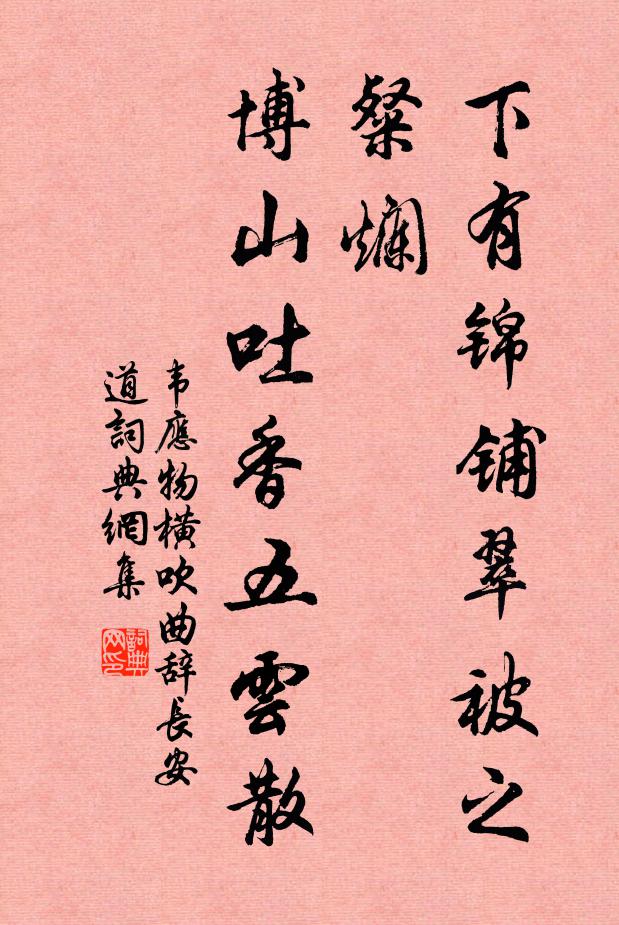 下有锦铺翠被之
粲爛
博山吐香五雲散
韦應物橫吹曲辞長安
道詞典網集
詞典
网印